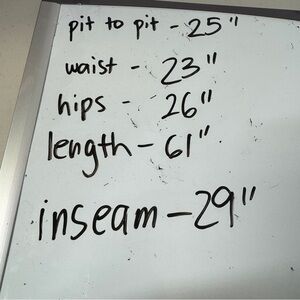 pit to pit - 25"
waist - 23"
hips - 26"
length - 61"
inseam - 29"